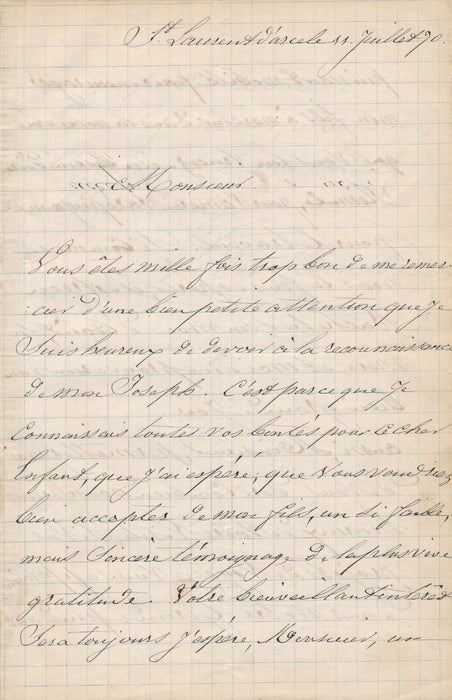 St Laurent d'arcele 11 Juillet 90.
Monsieur
Vous êtes mille fois trop bon de me remer-
cier d'une bien petite attention que Je
Suis heureux de devoir à la reconnaissance
de mon Joseph. C'est parce que Je
Connaissais toutes vos bontés pour ce cher
Enfant, que J'ai espéré, que Vous voudriez
bien accepter de mon fils, un Si faible,
mais Sincère témoignage de la plus vive
gratitude. Votre bienveillant intérêt
Sera toujours J'espère, Monsieur, un